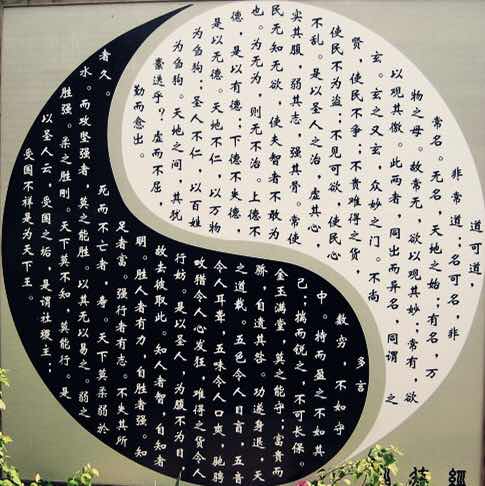 道可道，
非常道；名可名，非
常名。无名，天地之始；有名，万
物之母。故常无，欲以观其妙；常有，欲
以观其徼。此两者，同出而异名，同谓之
玄。玄之又玄，众妙之门。不尚
贤，使民不争；不贵难得之货，
使民不为盗；不见可欲，使民心
不乱。是以圣人之治，虚其心，
实其腹，弱其志，强其骨。常使
民无知无欲，使夫智者不敢为
也。为无为，则无不治。上德不
德，是以有德；下德不失德，
是以无德。天地不仁，以万物
为刍狗；圣人不仁，以百姓
为刍狗。天地之间，其犹
橐迭乎？虚而不屈，
勤而愈出。
多言
数穷，不如守
中。持而盈之不如其
己；揣而锐之，不可长保。
金玉满堂，莫之能守；富贵而
骄，自遗其咎。功遂身退，天
之道哉。五色令人目盲，五音
令人耳聋，五味令人口爽，驰骋
畋猎令人心发狂，难得之货令人
行妨。是以圣人，为腹不为目，
故去彼取此。知人者智，自知者
明。胜人者有力，自胜者强。知
足者富。强行者有志。不失其所
者久。死而不亡者，寿。天下莫柔弱於
水。而攻坚强者，莫之能胜。以其无以易之。弱之
胜强。柔之胜刚。天下莫不知，莫能行。是
以圣人云，受国之垢，是谓社稷主；
受国不祥是为天下王。
經